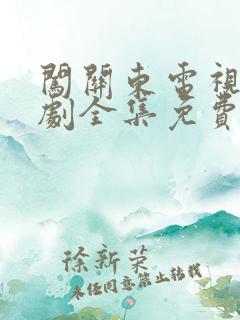 闖關東電視
劇全集免費
徐新榮
未经同意禁止转载